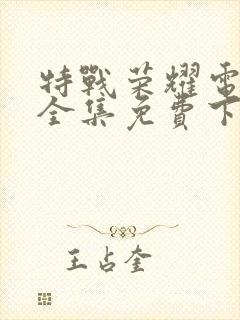 特戰荣耀電
全集免費下
王占奎